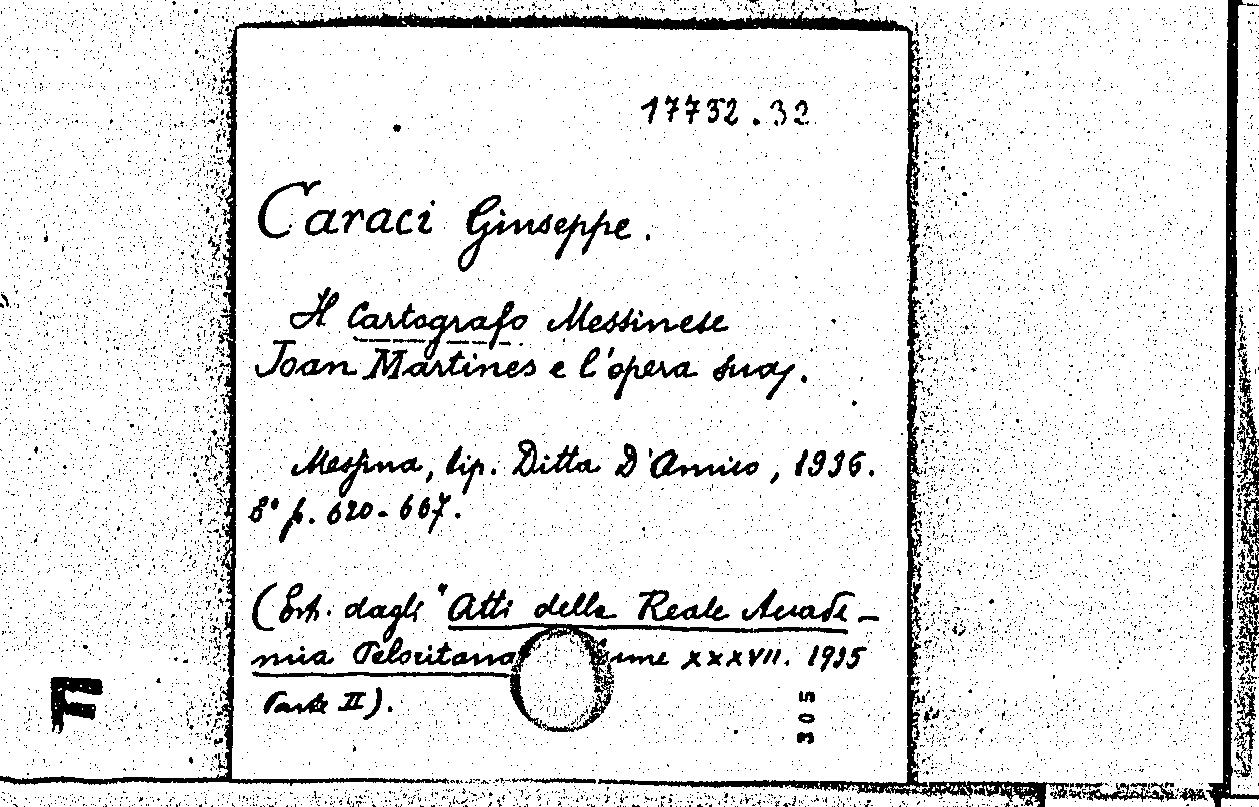 17732.32
Caraci Giuseppe.
Il Cartografo Messinese
Joan Martines e l'opera sua.
Messina, tip. Ditta D'Amico, 1936.
8° p. 620-667.
(Estr. dagli "Atti della Reale Accade-
mia Peloritana ume XXXVII. 1935
Parte II).
305
F